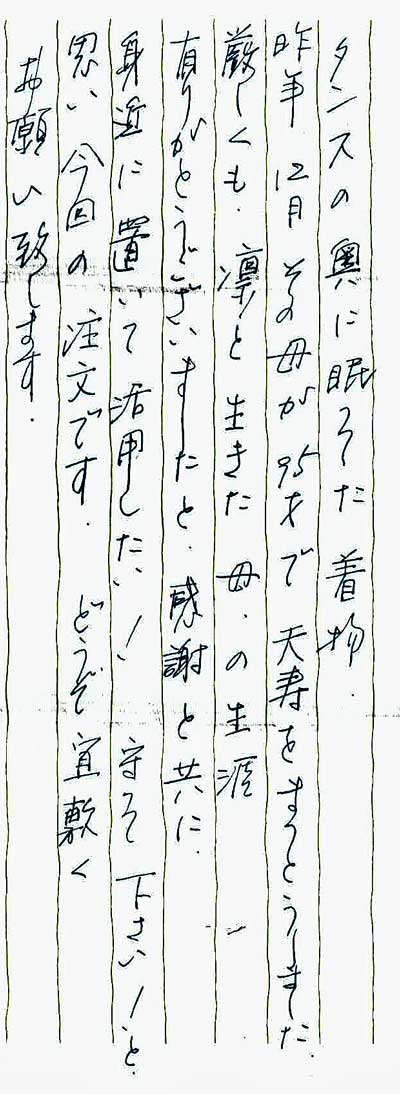 タンスの奥に眠ってた着物.
昨年12月その母が95才で天寿をまっとうしました.
厳しくも.凛と生きた母.の生涯
有りがとうございましたと.感謝と共に.
身近に置いて活用したい！守って下さい！と.
思い今回の注文です.どうぞ宜敷く
お願い致します.